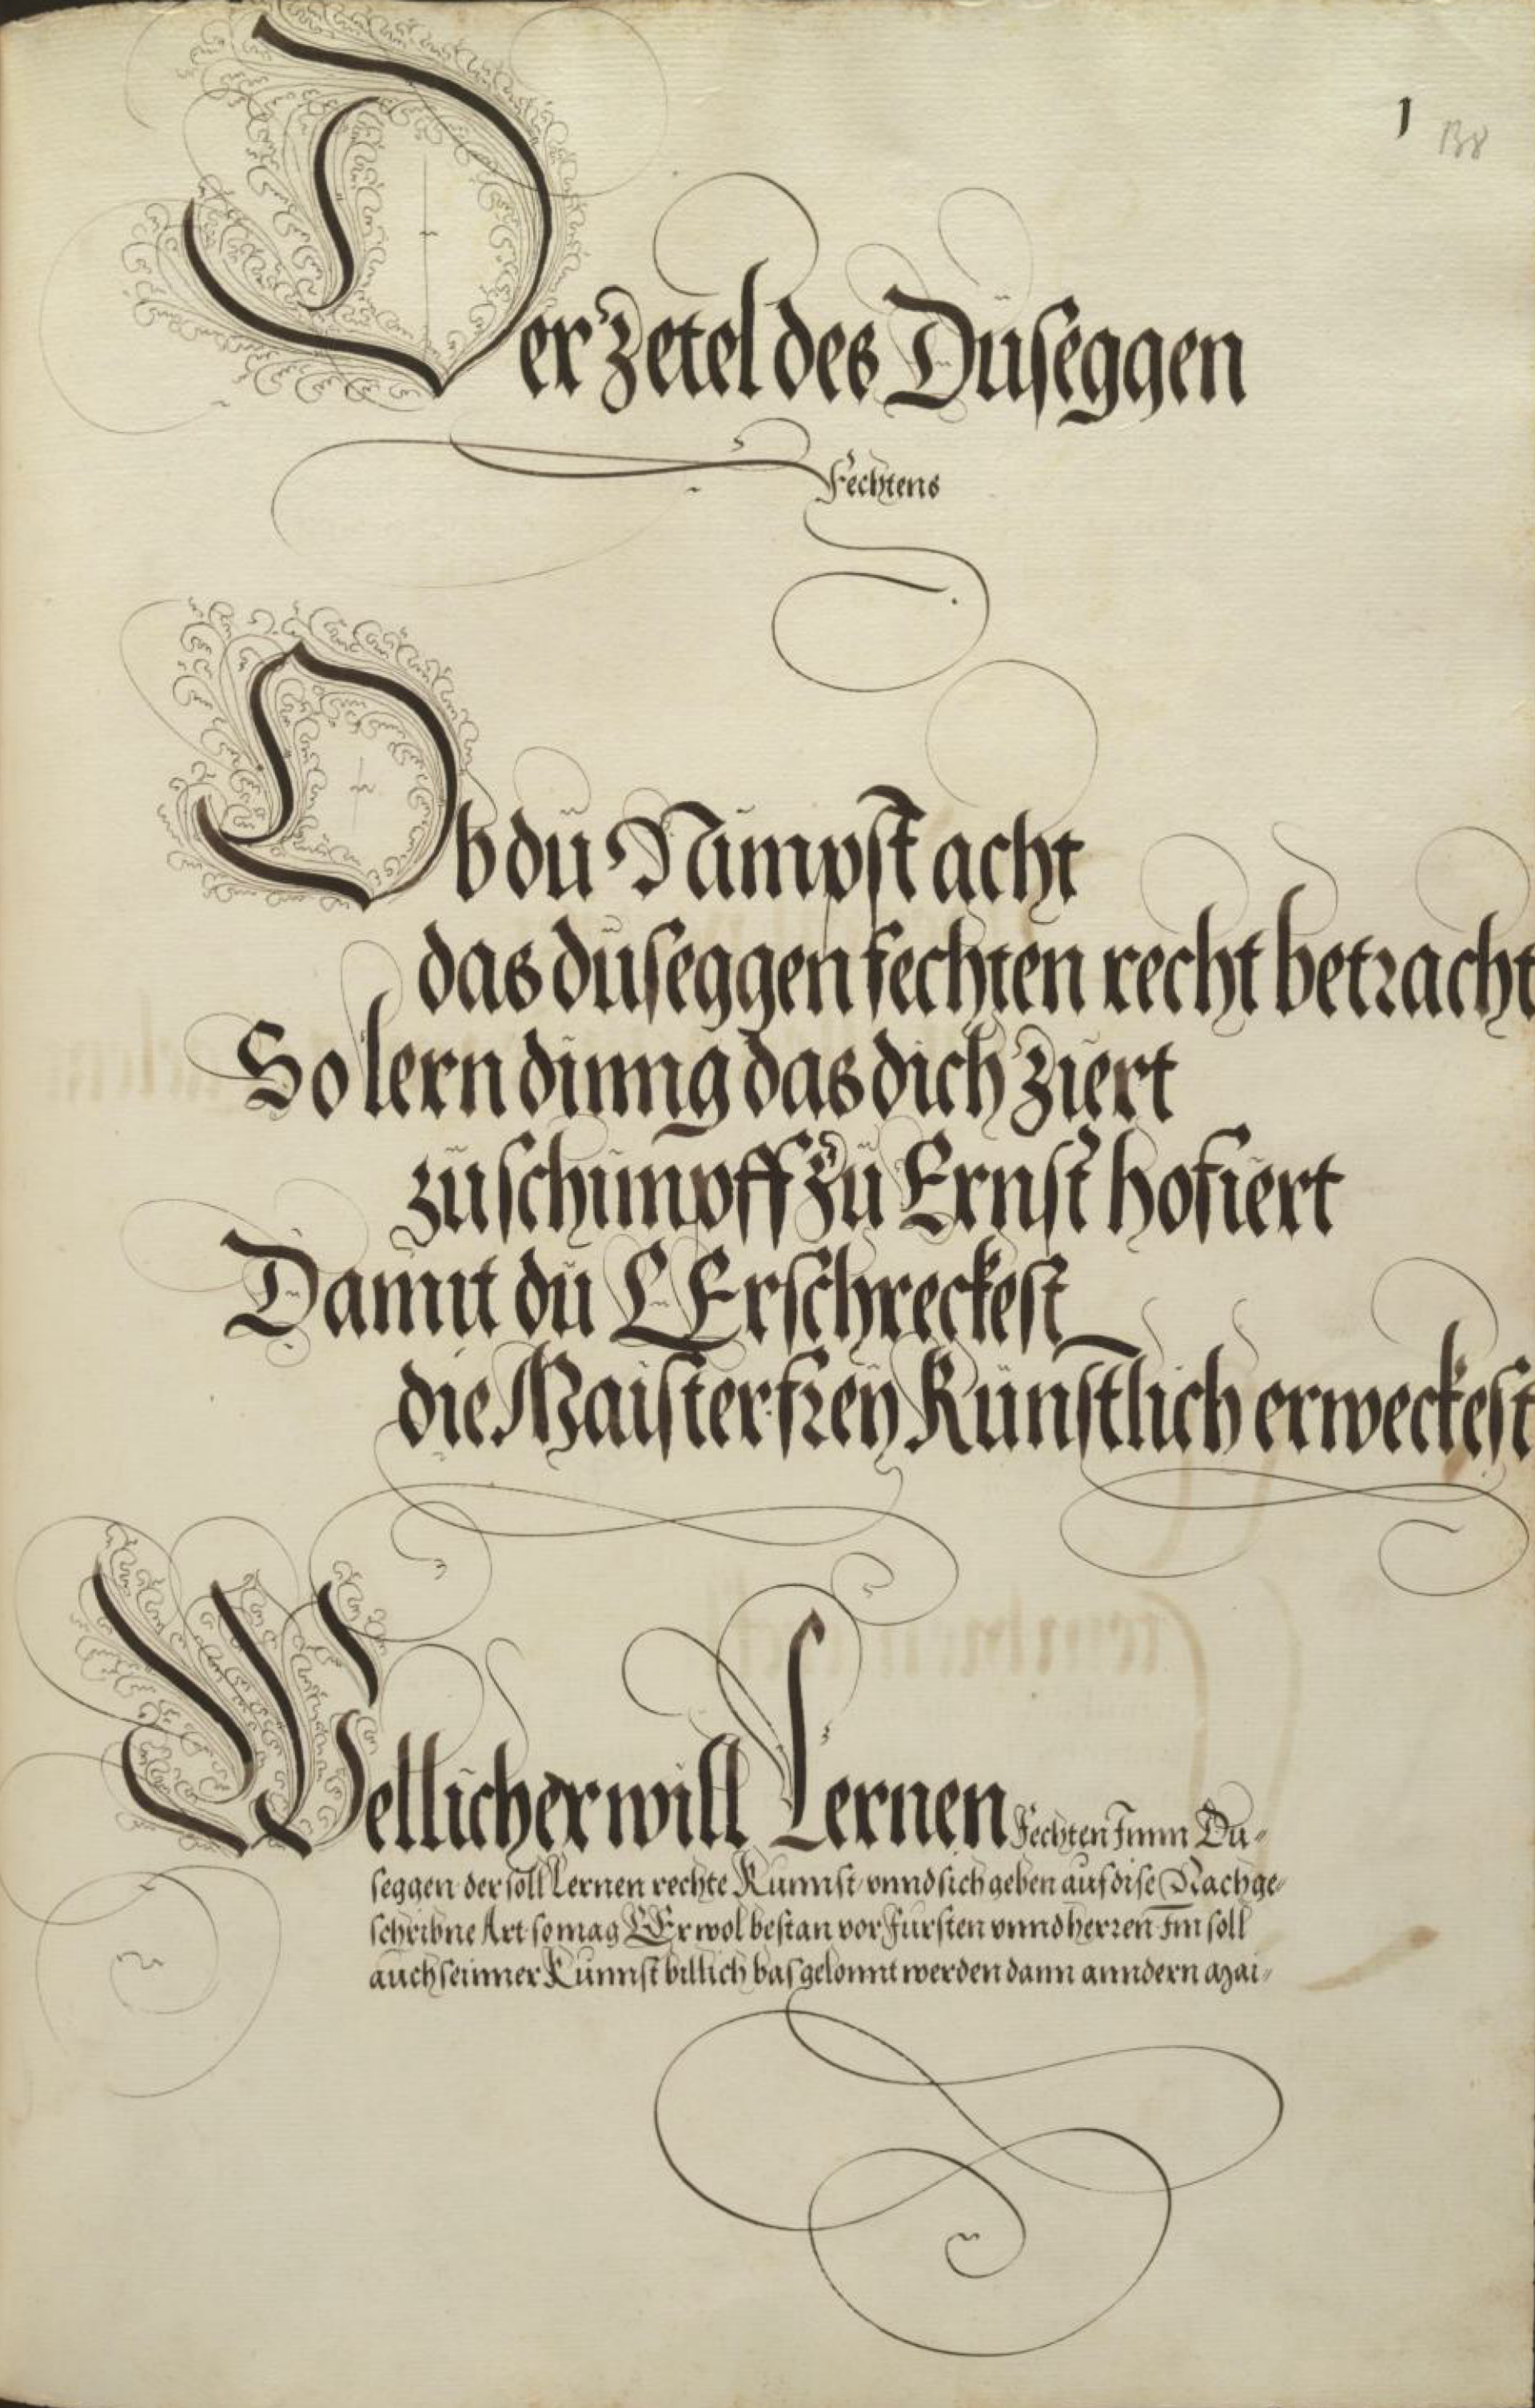 1 138
Der Zetel des Duseggen
Fechtens
Ob du Nimpst acht
das duseggen fechten recht betracht
So lern dinng das dich Ziert
zu schimpff Zu Ernst hofiert
Damit du Er schreckest
die Maister frey Kunstlich erweckest
Wellicher will Lernen Fechten Imm Du-
seggen der soll Lernen rechte Kunnst vnnd sich geben auf dise Nachge-
schribne Art so mag Er wol bestan vor Fursten vnnd herren Im soll
auch seinner Kunnst billich bas gelonnt werden dann anndern Mai-